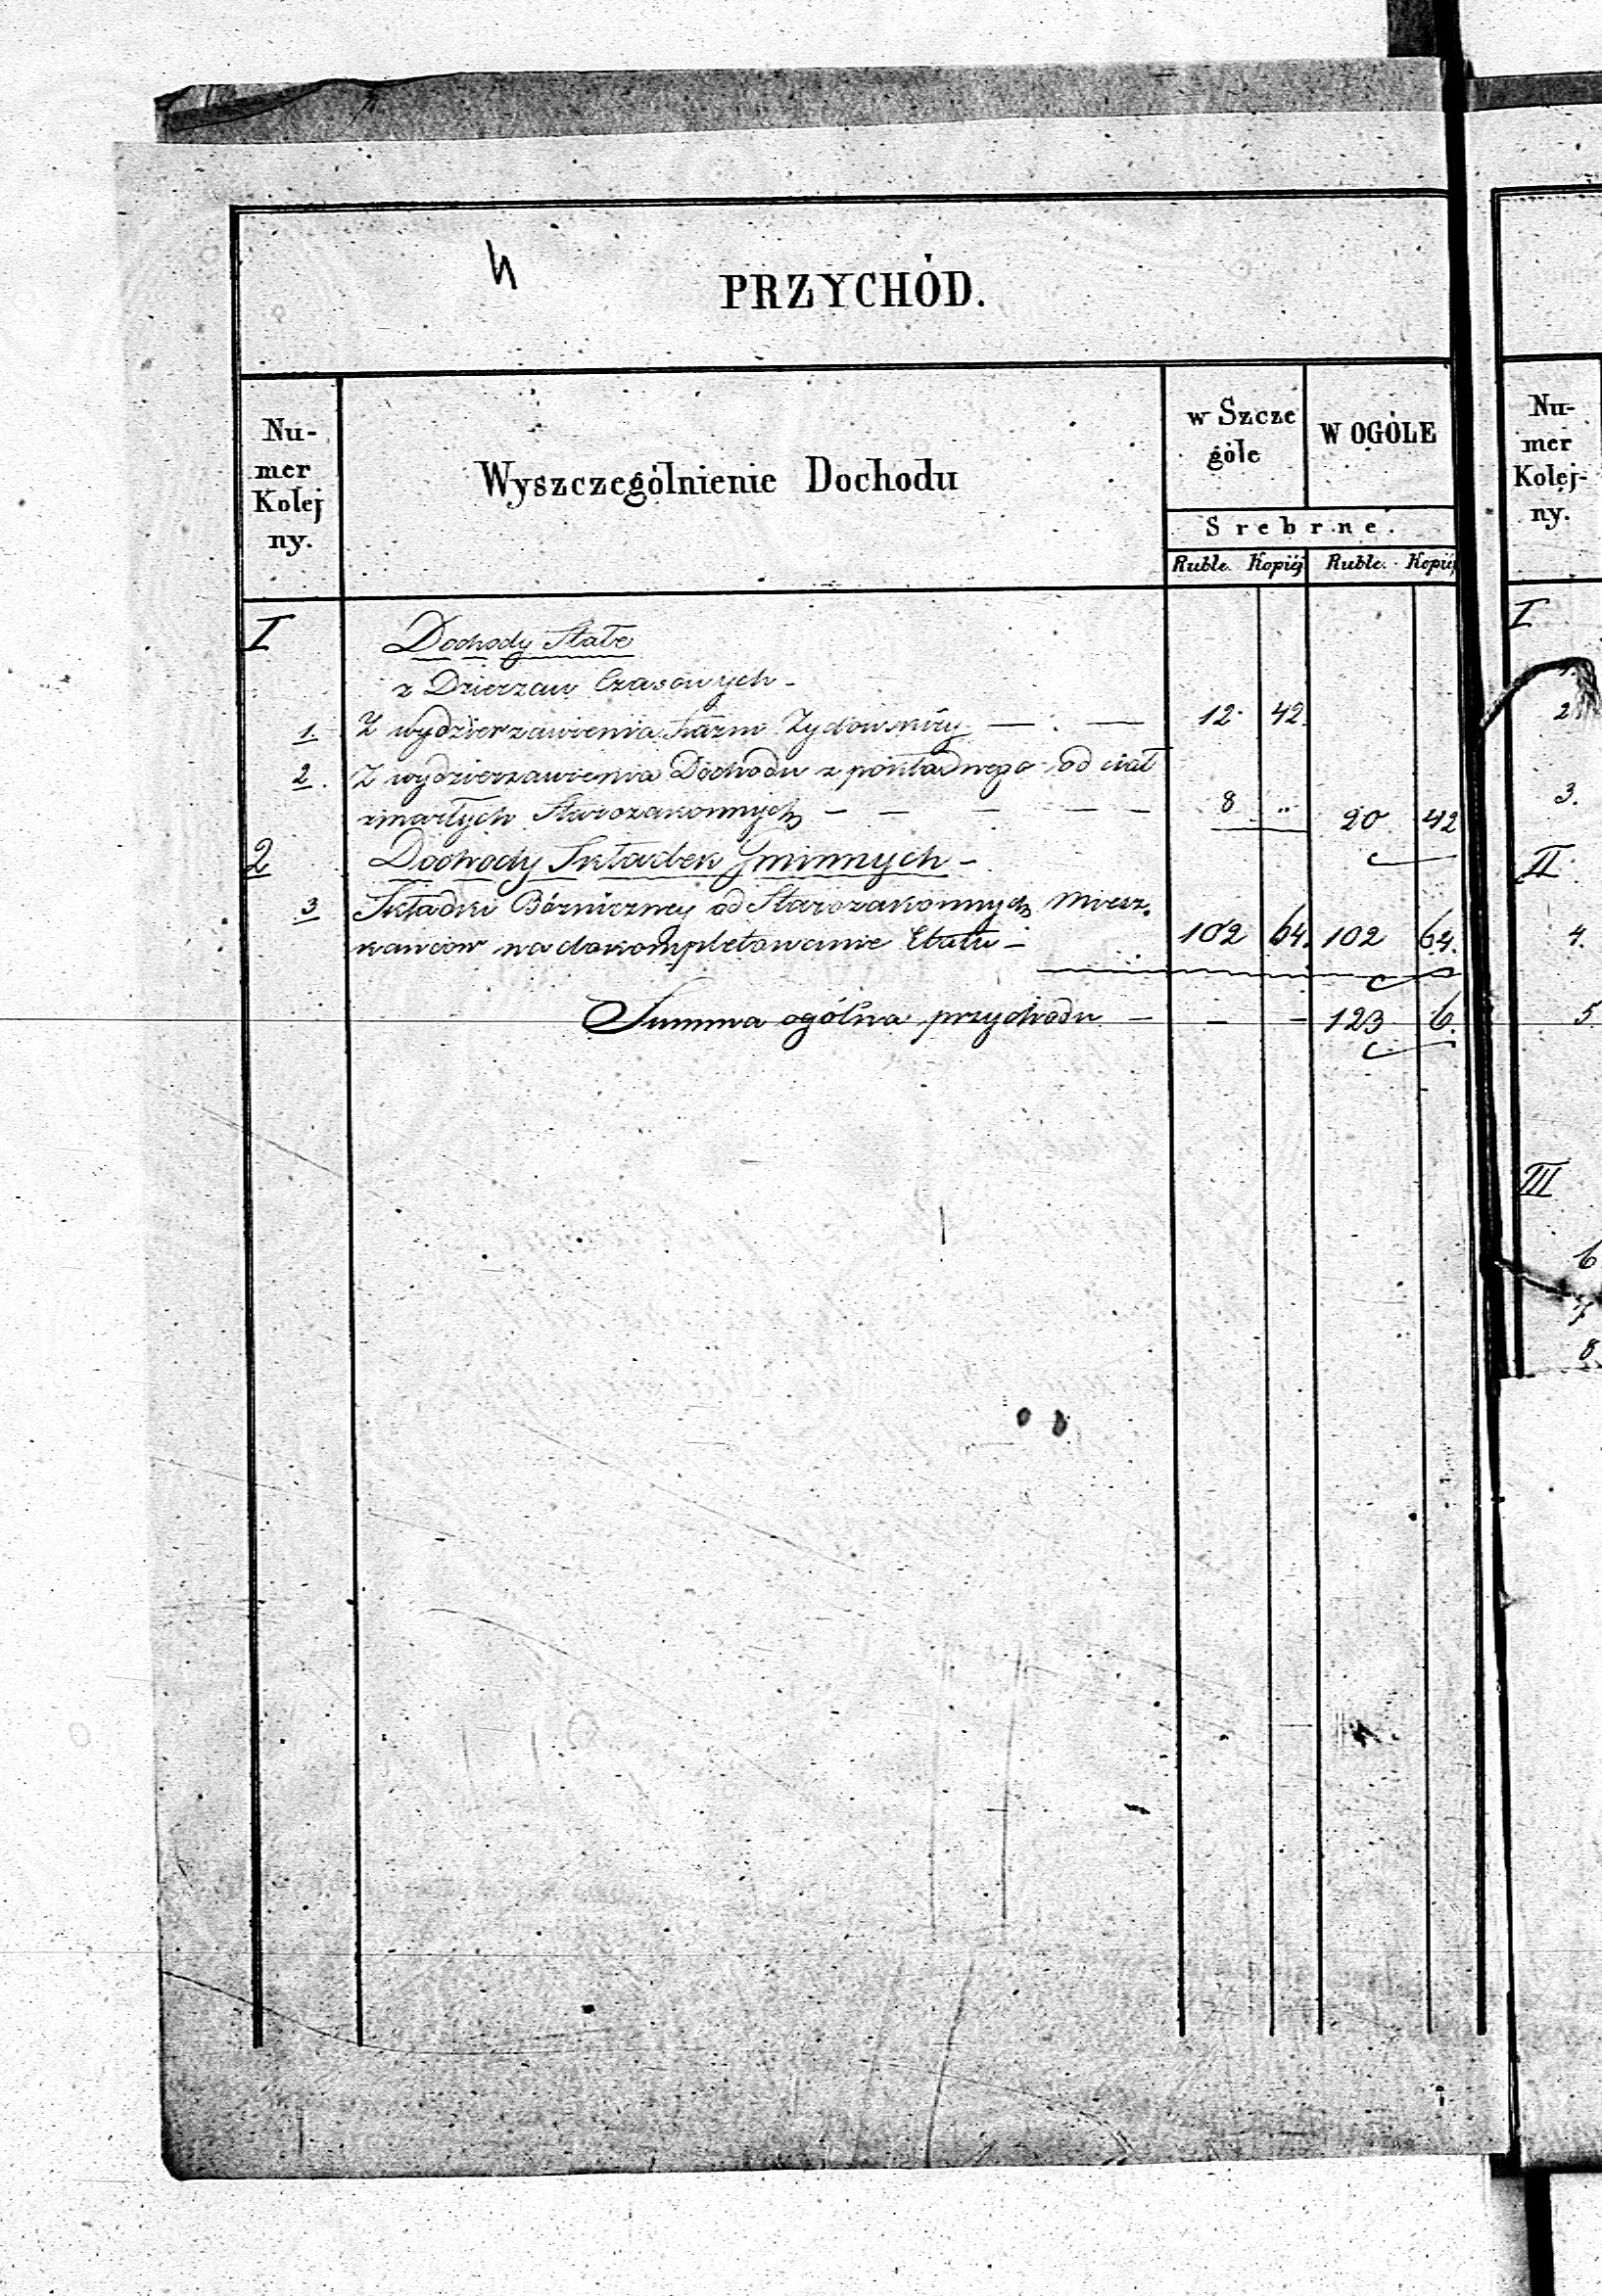 PRZYCHÓD.
Nu-
mer
Kolej
ny.
Wyszczególnienie Dochodu
w Szcze
góle
W OGÓLE
Srebrne.
Ruble. Kopiéj Ruble. Kopiéj
I Dochody Stałe
z Dzierzaw Czasowych -
1. Z wydzierzawienia Łaźni Zydowskiéy — — 12 42.
2. Z wydzierzawienia Dochodu z pokładnego od ciał
zmarłych Starozakonnych — — — — — 8 „ 20 42
2 Dochody Składek Gminnych -
3 Składki Bóżniczney od Starozakonnych Miesz-
kańców na dokompletowanie Etatu - 102 64. 102 64.
Summa ogólna przychodu — — — 123 6.
Nu-
mer
Kolej-
ny.
I
2
3.
II
4.
5
III
6
7
8